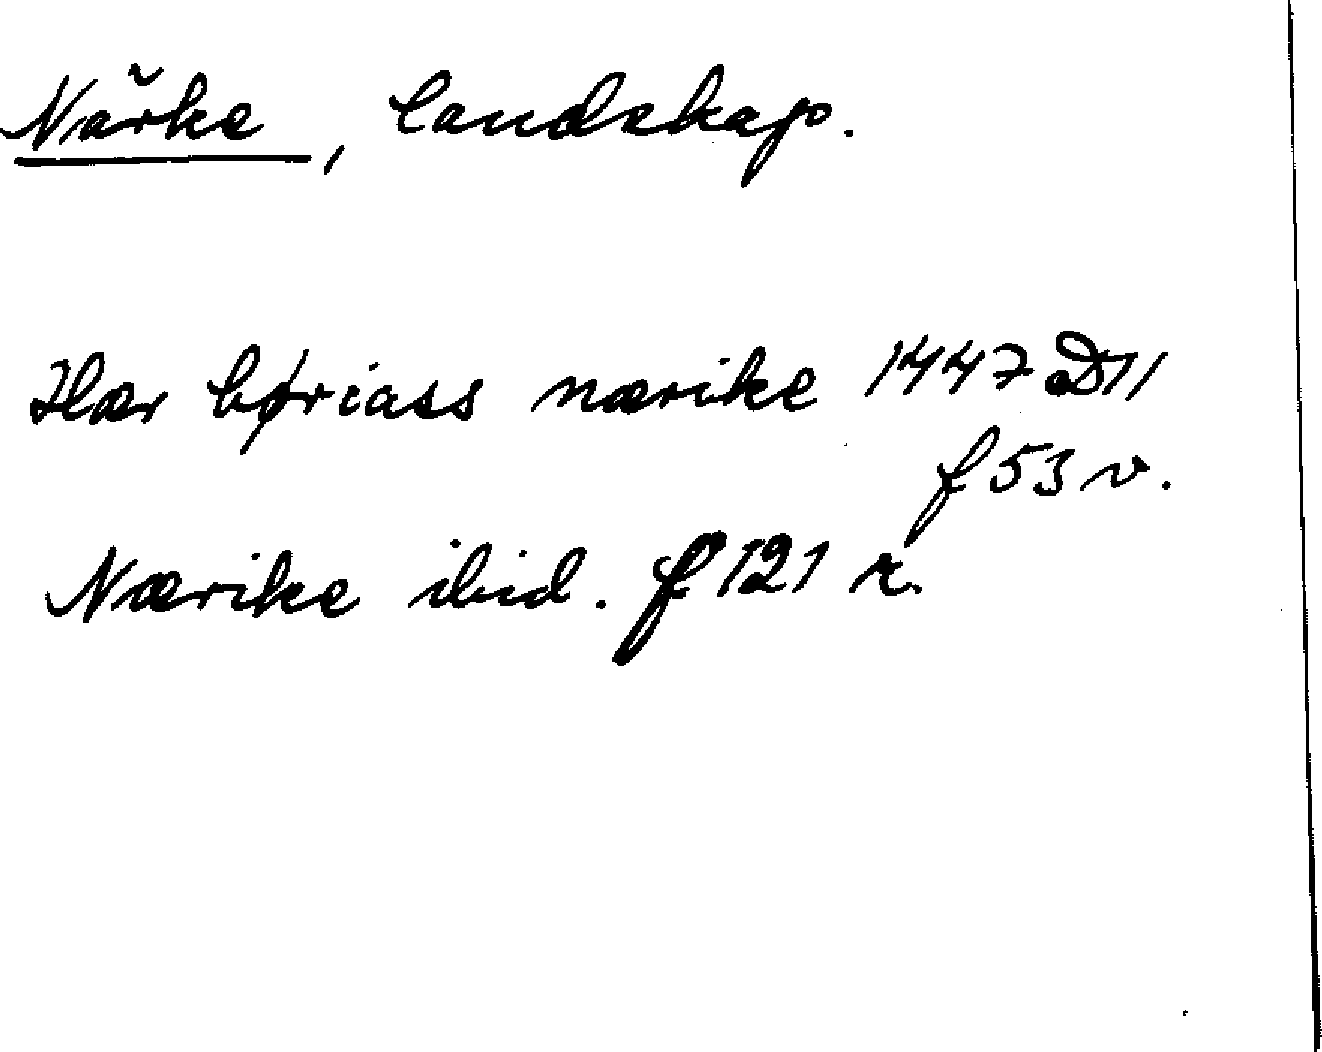 Närke, landskap.
Hær børiass nærike 1447 D11
f 53 v.
Nærike ibid. f 121 r.